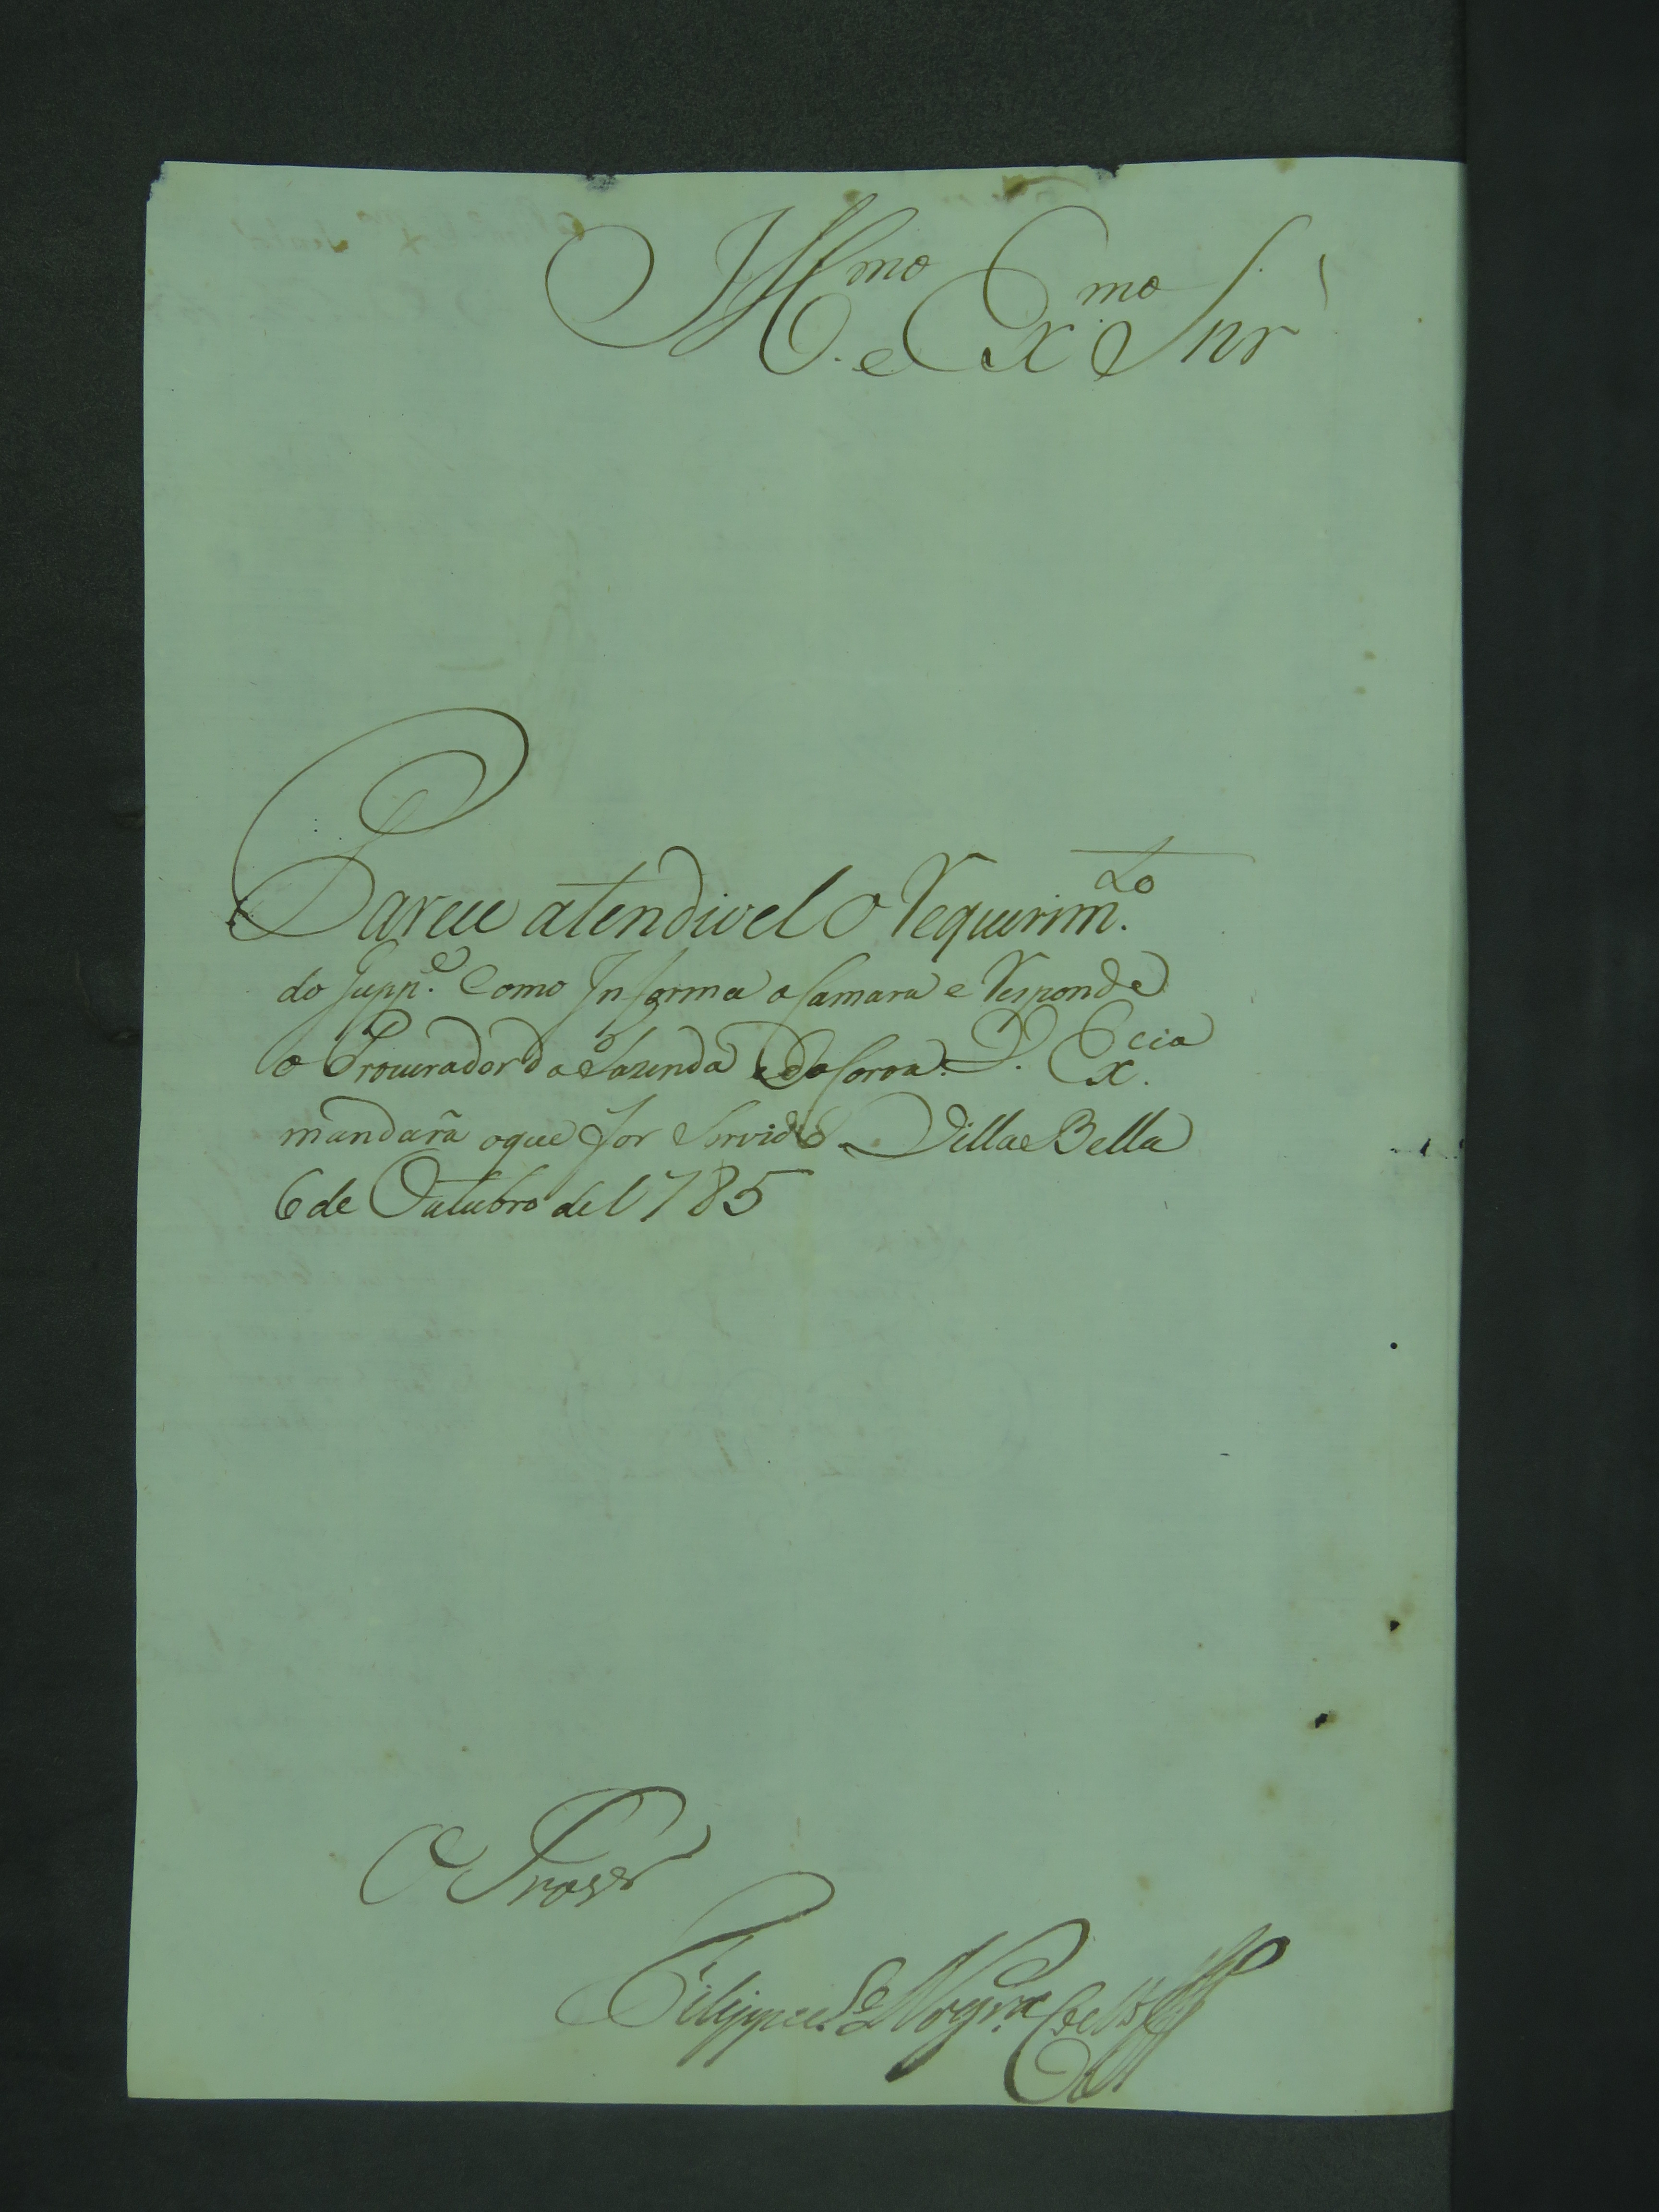 Illmo. e Exmo Snr
Parece atendivel o requerim.to
do Supp.e como Informa a Camara e Responde
o Procurador da Fazenda e da Coroa. V. Ex.cia
mandará o que for Servido. Villa Bella
6 de Outubro de 1785
O Provor
Filippe Je Nogra Coelho